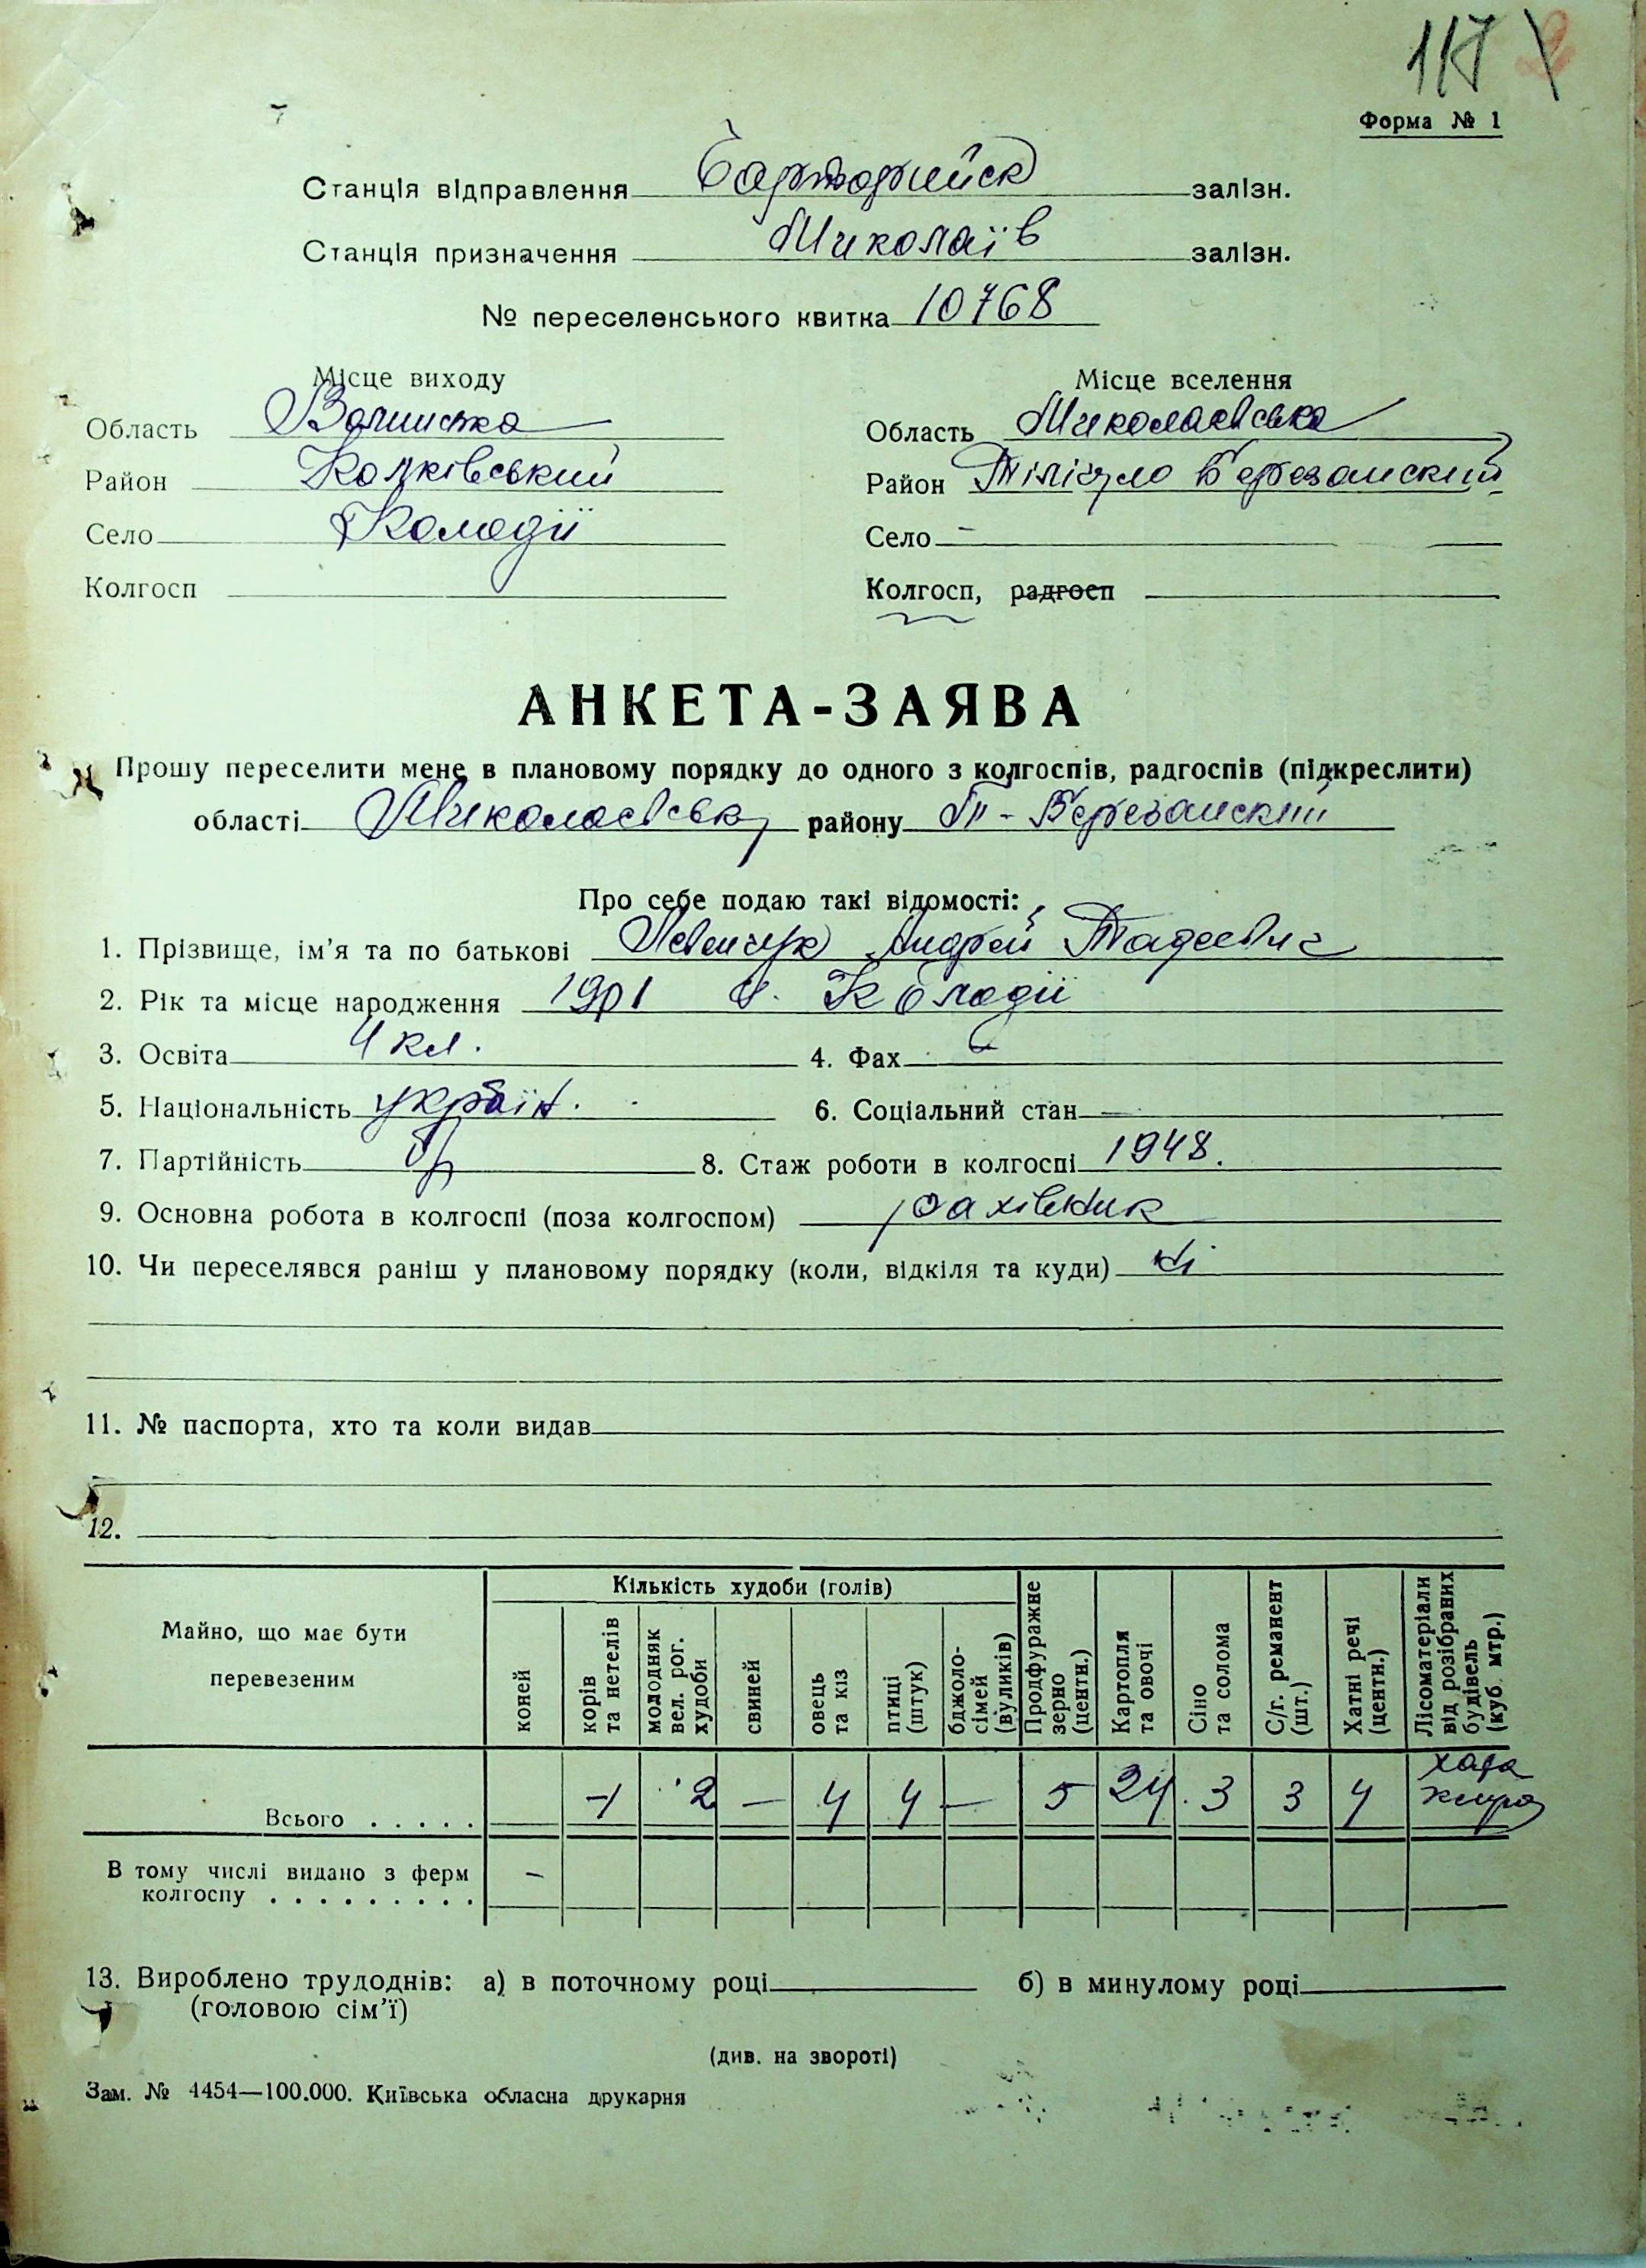 117
Форма № 1
Станція відправлення Чарторийск залізн.
Станція призначення Миколаїв залізн.
№ переселенського квитка 10768
Місце виходу Місце вселення
Область Волинська Область Миколаївська
Район Колківський Район Тілігуло Березанский
Село Колодії Село —
Колгосп Колгосп, радгосп
АНКЕТА-ЗАЯВА
Прошу переселити мене в плановому порядку до одного з колгоспів, радгоспів (підкреслити)
області Миколаєвськ району Т-Березанский
Про себе подаю такі відомості:
1. Прізвище, ім'я та по батькові Левчук Андрей Тадеевич
2. Рік та місце народження 1901 с. Колодії
3. Освіта 4 кл. 4. Фах —
5. Національність україн. 6. Соціальний стан —
7. Партійність б/п 8. Стаж роботи в колгоспі 1948.
9. Основна робота в колгоспі (поза колгоспом) рахівник
10. Чи переселявся раніш у плановому порядку (коли, відкіля та куди) ні
11. № паспорта, хто та коли видав
12.
Майно, що має бути перевезеним
Кількість худоби (голів)
коней
корів та нетелів
молодняк вел. рог. худоби
свиней
овець та кіз
птиці (штук)
бджоло-сімей (вуликів)
Продфуражне зерно (центн.)
Картопля та овочі
Сіно та солома
С/г. реманент (шт.)
Хатні речі (центн.)
Лісоматеріали від розібраних будівель (куб. мтр.)
Всього . . . . . 1 2 — 4 4 — 5 24 3 3 4 хата
В тому числі видано з ферм
колгоспу . . . . . . . . . —
13. Вироблено трудоднів: а) в поточному році б) в минулому році
(головою сім'ї)
(див. на звороті)
Зам. № 4454—100.000. Київська обласна друкарня